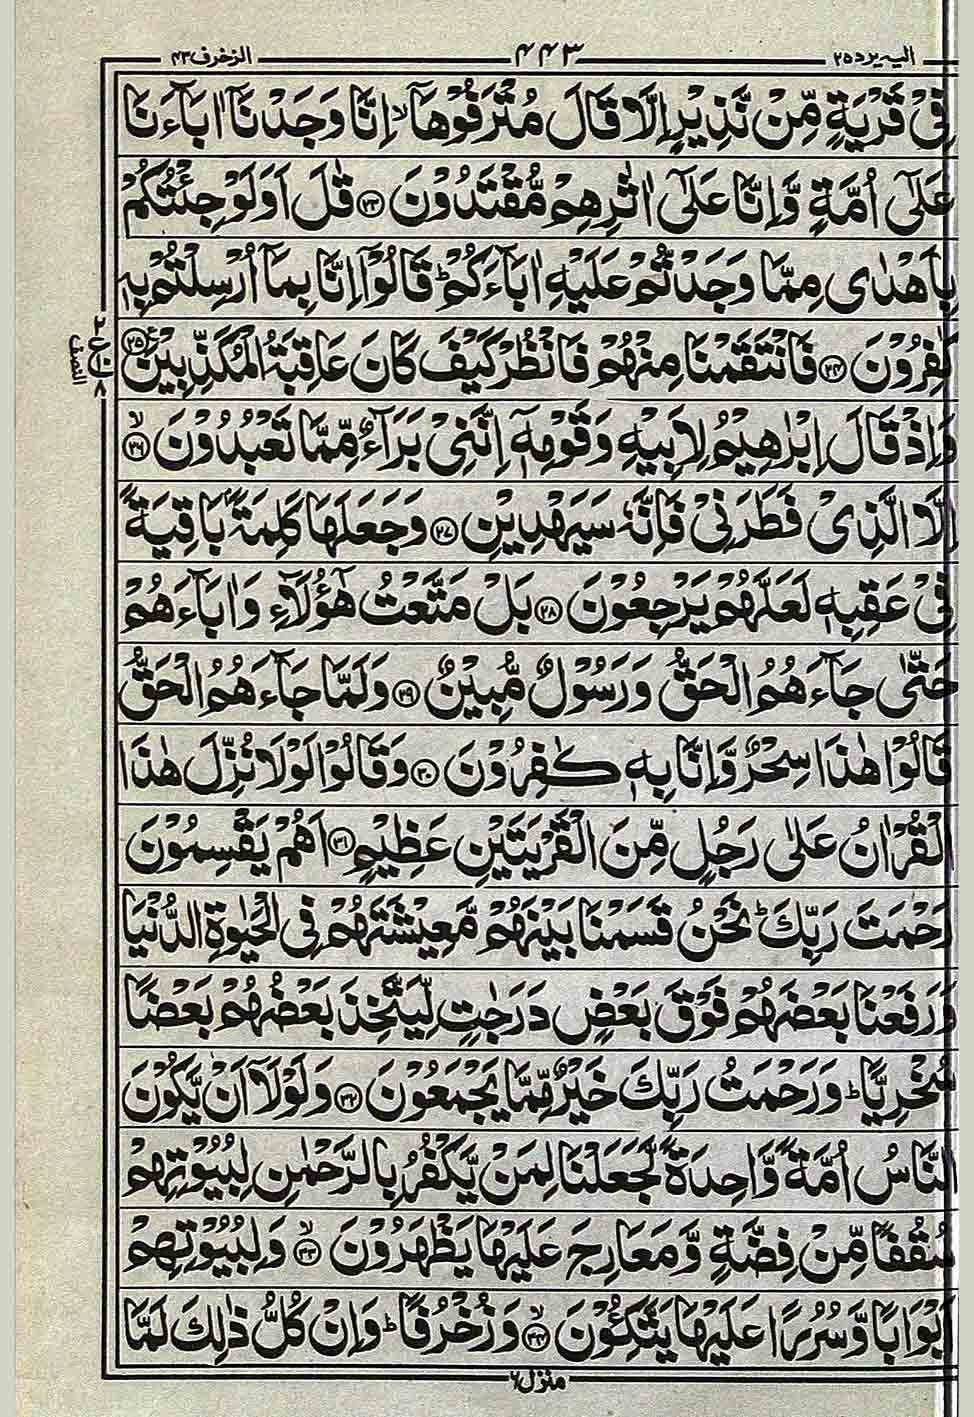 الیه یرد ۲۵ ۴۴۳ الزخرف ۴۳
فِیۡ قَرۡیَۃٍ مِّنۡ نَّذِیۡرٍ اِلَّا قَالَ مُتۡرَفُوۡہَاۤ ۙ اِنَّا وَجَدۡنَاۤ اٰبَآءَنَا
عَلٰۤی اُمَّۃٍ وَّ اِنَّا عَلٰۤی اٰثٰرِہِمۡ مُّقۡتَدُوۡنَ ﴿۲۳﴾ قٰلَ اَوَ لَوۡ جِئۡتُکُمۡ
بِاَہۡدٰی مِمَّا وَجَدۡتُّمۡ عَلَیۡہِ اٰبَآءَکُمۡ ؕ قَالُوۡۤا اِنَّا بِمَاۤ اُرۡسِلۡتُمۡ بِہٖ
کٰفِرُوۡنَ ﴿۲۴﴾ فَانۡتَقَمۡنَا مِنۡہُمۡ فَانۡظُرۡ کَیۡفَ کَانَ عَاقِبَۃُ الۡمُکَذِّبِیۡنَ ﴿۲۵﴾
ع ۲ ۱۰ ۸
النصف
وَ اِذۡ قَالَ اِبۡرٰہِیۡمُ لِاَبِیۡہِ وَ قَوۡمِہٖۤ اِنَّنِیۡ بَرَآءٌ مِّمَّا تَعۡبُدُوۡنَ ﴿ۙ۲۶﴾
اِلَّا الَّذِیۡ فَطَرَنِیۡ فَاِنَّہٗ سَیَہۡدِیۡنِ ﴿۲۷﴾ وَ جَعَلَہَا کَلِمَۃًۢ بَاقِیَۃً
فِیۡ عَقِبِہٖ لَعَلَّہُمۡ یَرۡجِعُوۡنَ ﴿۲۸﴾ بَلۡ مَتَّعۡتُ ہٰۤؤُلَآءِ وَ اٰبَآءَہُمۡ
حَتّٰی جَآءَہُمُ الۡحَقُّ وَ رَسُوۡلٌ مُّبِیۡنٌ ﴿۲۹﴾ وَ لَمَّا جَآءَہُمُ الۡحَقُّ
قَالُوۡا ہٰذَا سِحۡرٌ وَّ اِنَّا بِہٖ کٰفِرُوۡنَ ﴿۳۰﴾ وَ قَالُوۡا لَوۡ لَا نُزِّلَ ہٰذَا
الۡقُرۡاٰنُ عَلٰی رَجُلٍ مِّنَ الۡقَرۡیَتَیۡنِ عَظِیۡمٍ ﴿۳۱﴾ اَہُمۡ یَقۡسِمُوۡنَ
رَحۡمَتَ رَبِّکَ ؕ نَحۡنُ قَسَمۡنَا بَیۡنَہُمۡ مَّعِیۡشَتَہُمۡ فِی الۡحَیٰوۃِ الدُّنۡیَا
وَ رَفَعۡنَا بَعۡضَہُمۡ فَوۡقَ بَعۡضٍ دَرَجٰتٍ لِّیَتَّخِذَ بَعۡضُہُمۡ بَعۡضًا
سُخۡرِیًّا ؕ وَ رَحۡمَتُ رَبِّکَ خَیۡرٌ مِّمَّا یَجۡمَعُوۡنَ ﴿۳۲﴾ وَ لَوۡ لَاۤ اَنۡ یَّکُوۡنَ
النَّاسُ اُمَّۃً وَّاحِدَۃً لَّجَعَلۡنَا لِمَنۡ یَّکۡفُرُ بِالرَّحۡمٰنِ لِبُیُوۡتِہِمۡ
سُقُفًا مِّنۡ فِضَّۃٍ وَّ مَعَارِجَ عَلَیۡہَا یَظۡہَرُوۡنَ ﴿ۙ۳۳﴾ وَ لِبُیُوۡتِہِمۡ
اَبۡوَابًا وَّ سُرُرًا عَلَیۡہَا یَتَّکِـُٔوۡنَ ﴿ۙ۳۴﴾ وَ زُخۡرُفًا ؕ وَ اِنۡ کُلُّ ذٰلِکَ لَمَّا
منزل ۶